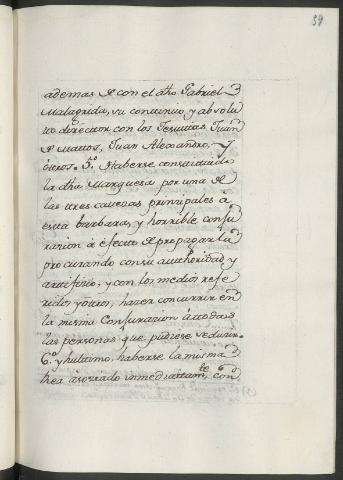 59
ademas de con el dho Gabriel
Malagrida, su continuo, y absolu
to director, con los Jesuitas Juan
de Mattos, Juan Alexandro, y
otros. 5.º Haberse constituido
la dha Marquesa por una de
las tres cavezas prinzipales de
esta barbara, y horrible conju
razion á efecto de propagarla
procurando con su authoridad y
artifizio, y con los medios refe
ridos y otros, hazer concurrir en
la misma Conjurazion á todas
las personas que pudiese seduzir.
6.º y hultimo, haberse la misma
hea asociado inmediatamte con